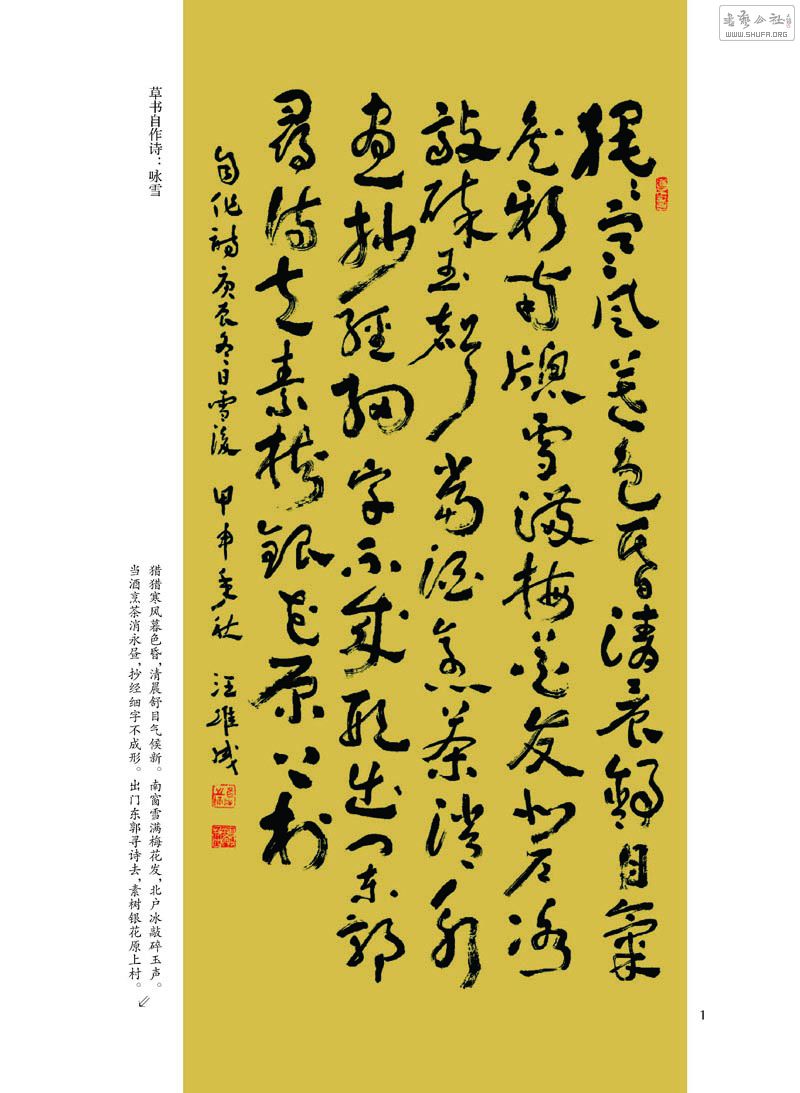 書藝公社
WWW.SHUFA.ORG
猎猎寒风暮色昏清晨舒目氣
候新南牕雪满梅花发北户冰
敲碎玉聲當酒烹茶消永
晝抄經細字不成形出门东郭
尋诗去素樹銀花原上村
自作詩庚辰冬日雪後甲申季秋汪維成
草书自作诗：咏雪
猎猎寒风暮色昏，清晨舒目气候新。南窗雪满梅花发，北户冰敲碎玉声。
当酒烹茶消永昼，抄经细字不成形。出门东郭寻诗去，素树银花原上村。
1